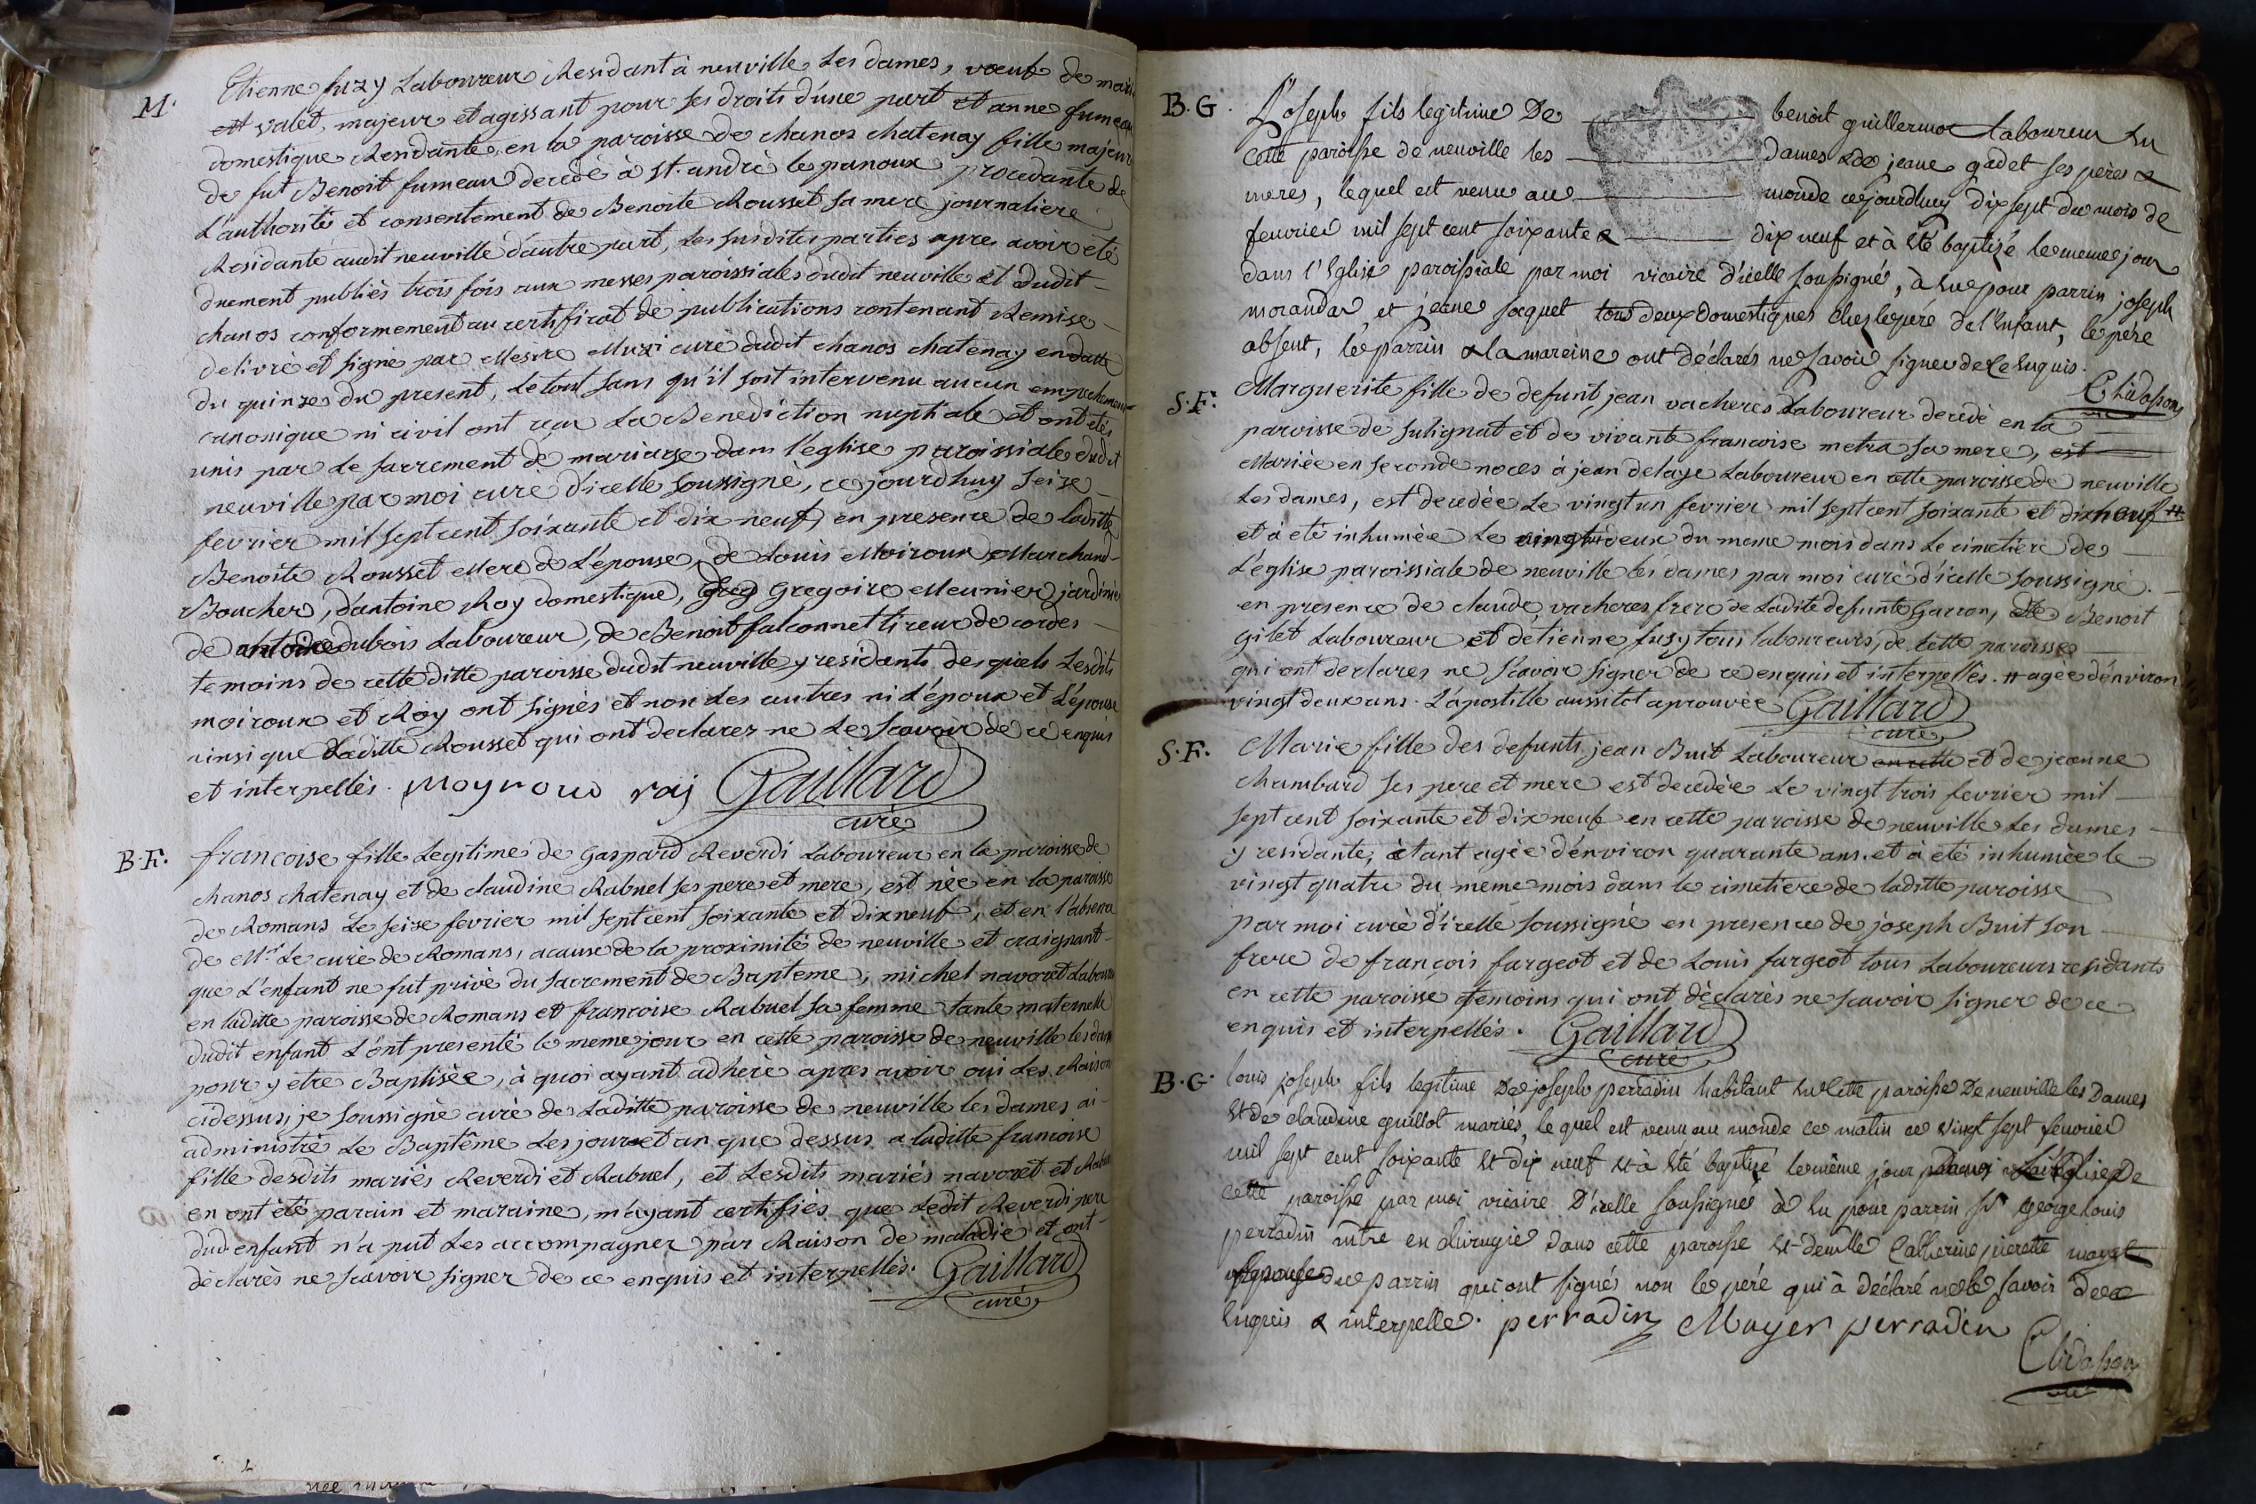 M.
Etienne fuzy Laboureur Residant à neuville Les dames, vœuf de marie
valét, majeur et agissant pour ses droits d'une part et anne fumeau
domestique Residante en la paroisse de chanos chatenay fille majeure
de fut Benoit fumeau decedé à st. andrè le panoux procedante de
L'authorité et consentement de Benoite Rousset sa mere journaliere
Residante audit neuville d'autre part, Les susdites parties apres avoir eté
duement publiès trois fois aux messes paroissiales dudit neuville et dudit
chanos conformement au certificat de publications contenant Remise
delivré et signé par Messire curè dudit chanos chatenay en datte
du quinze du present, Le tout sans qu'il soit intervenu aucun empechement
canonique ni civil ont reçu La Benediction nuptiale et ont etés
unis par Le sacrement de mariage dans l'église paroissiale dudit
neuville par moi curé d'icelle soussignè, ce jourdhuy seize
fevrier mil sept cent soixante et dix neuf, en presence de laditte
Benoite Rousset Mere de L'épouse, de Louis Moiroux Marchand
Boucher, d'antoine Roy domestique, Greg Gregoire Meunier jardinier
de antoine dubois Laboureur, de Benoit falconnet tireur de cordes
temoins de cette ditte paroisse dudit neuville y residants, des quels Lesdits
moiroux et Roy ont signès et non Les autres ni L'époux et L'épouse
ainsi que Laditte Rousset qui ont declarez ne Le scavoir de ce enquis
et interpellès. Moyroud roij Gaillard
curé
B.F.
francoise fille Legitime de Gaspard Reverdi Laboureur en la paroisse de
chanos chatenay et de claudine Rabuel ses pere et mere, est nèe en la paroisse
de Romans Le seize fevrier mil sept cent soixante et dix neuf, et en l'absence
de Mr. Le curè de Romans, a cause de la proximité de neuville et craignant
que L'enfant ne fut privè du sacrement de Bapteme, michel navoret Laboureur
en laditte paroisse de Romans et francoise Rabuel sa femme tante maternelle
dudit enfant L'ont presentè le meme jour en cette paroisse de neuville les dames
pour y etre Baptisèe, à quoi ayant adherè apres avoir oui Les Raisons
cidessus, je soussignè curè de Laditte paroisse de neuville les dames ai
administrè Le Baptême Les jour et an que dessus a laditte francoise
fille desdits mariès Reverdi et Rabuel, et Lesdits mariés navoret et Rabuel
en ont été parain et maraine, m'ayant certifiès que Ledit Reverdi pere
dud enfant n'a put Les accompagner par Raison de maladie et ont
dèclarès ne scavoir signer de ce enquis et interpellès. Gaillard
curé
B.G.
Joseph fils legitime De benoit guillermot laboureur En
cette paroisse de neuville les dames & de jeane gadet ses pères &
meres, lequel est venu au monde cejourdhuy dix sept du mois de
fevrier mil sept cent soixante & dix neuf et à été baptizé le meme jour
dans l'Eglise paroissiale par moi vicaire d'icelle soussigné, à Eu pour parrin joseph
morandas et jeane jacquet tous deux Domestiques Ches le père de l'Enfant, le père
absent, le parrin & la mareine ont déclarés ne savoir signer de ce Enquis.
S.F.
Marguerite fille de defunt jean vacheres Laboureur decedè en la
paroisse de sulignat et de vivante francoise metra sa mere, est
Mariée en seconde noces à jean delaye Laboureur en cette paroisse de neuville
Les dames, est decedèe Le vingt un fevrier mil sept cent soixante et dix neuf #
et à été inhumèe Le vingt deux du meme mois dans Le cimetière de
L'église paroissiale de neuville lès dames par moi curé d'icelle soussigné.
en presence de claude vacheres frere de Ladite defunte Garcon, de Benoit
Gilet Laboureur et d'etienne fusy tous laboureurs de cette paroisse
qui ont declares ne scavoir signer de ce enquis et interpellès. # agèe d'environ
vingt deux ans. L'apostille aussitot aprouvèe Gaillard
curé
S.F.
Marie fille des defunts jean Buit Laboureur en cette et de jeanne
chambard ses pere et mere est decedèe Le vingt trois fevrier mil
sept cent soixante et dix neuf en cette paroisse de neuville Les dames
y residante, étant agèe d'environ quarante ans. et à eté inhumèe le
vingt quatre du meme mois dans le cimetiere de laditte paroisse
par moi curè d'icelle soussignè en presence de joseph Buit son
frere de françois fargeot et de Louis fargeot tous Laboureurs residants
en cette paroisse temoins qui ont dèclarès ne scavoir signer de ce
enquis et interpellès. Gaillard
curé
B.G.
louis joseph fils legitime De joseph perradin habitant En Cette paroisse De neuville les Dames
Et de claudine guillot mariés, le quel est venu au monde ce matin ce vingt sept fevrier
mil sept cent soixante Et dix neuf Et à été baptizé le même jour dans l'Eglise De
Cette paroisse par moi vicaire D'icelle soussigné à Eu pour parrin sr george louis
perradin mtre en chirurgie dans cette paroisse Et demlle Catherine pierrette
Epouse du parrin qui ont signés non le père qui à déclaré ne le savoir de ce
Enquis & interpellé. perradin Mayer perradin